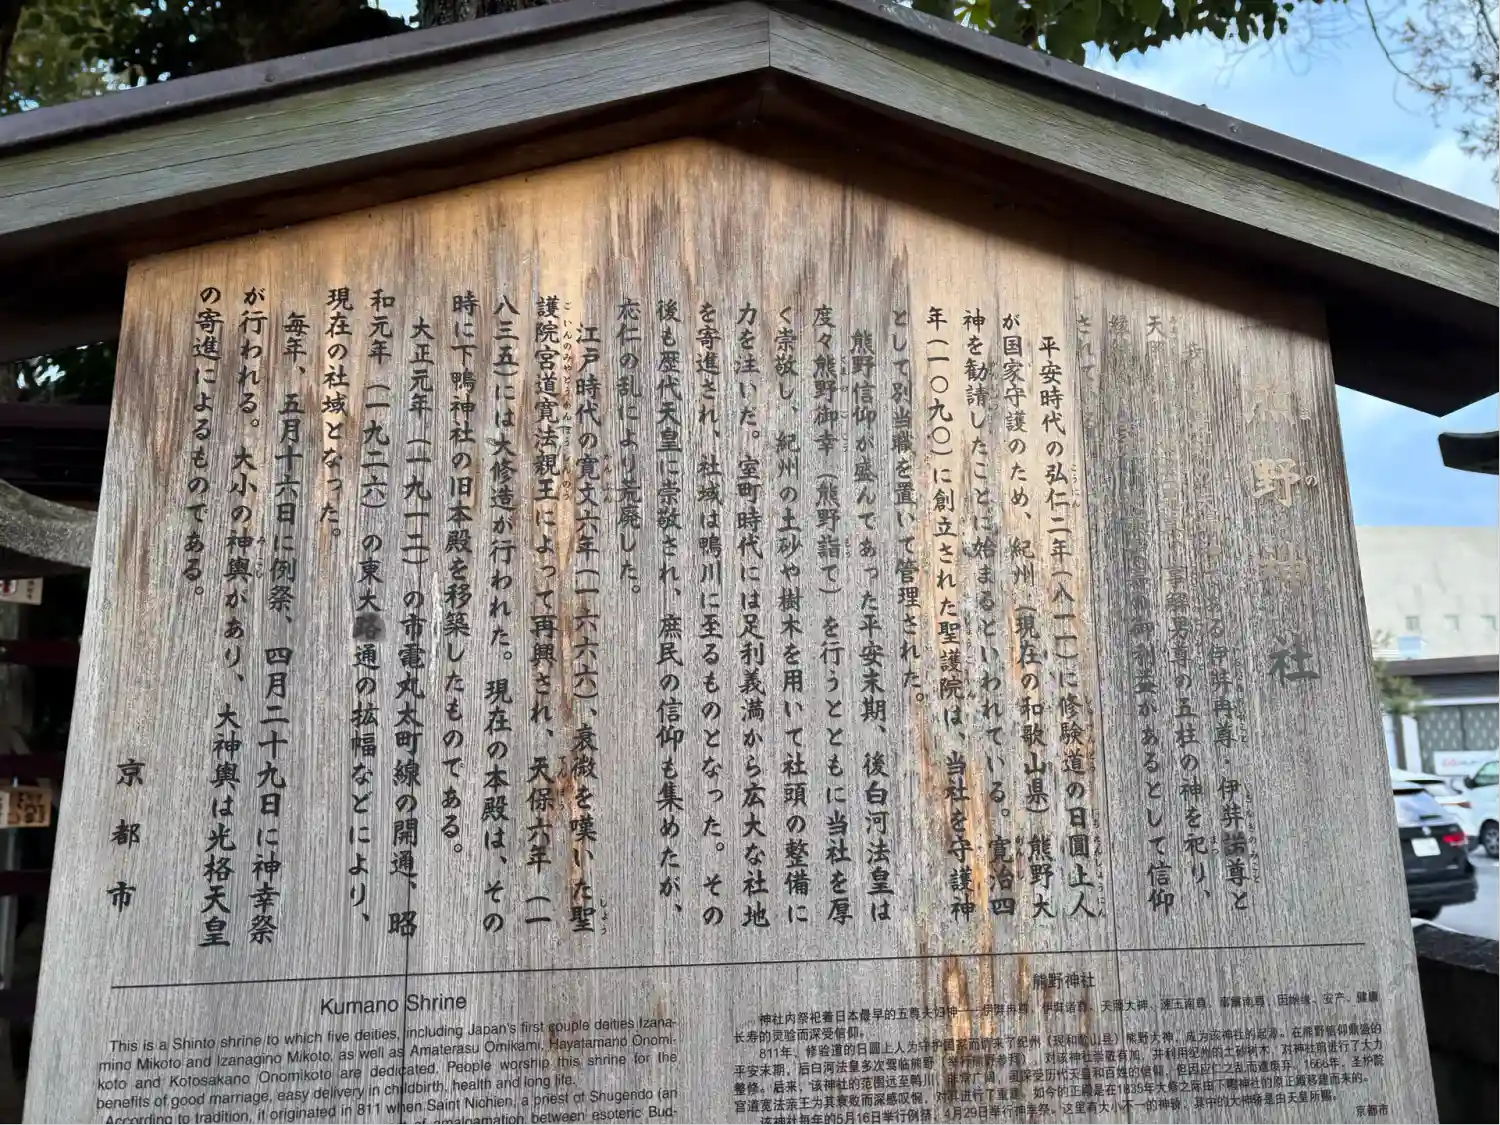 熊野神社
る伊弉冉尊・伊弉諾尊と
男尊の五柱の神を祀り、
御利益があるとして信仰
されて
平安時代の弘仁二年(八一一)に修験道の日圓上人
が国家守護のため、紀州(現在の和歌山県)熊野大
神を勧請したことに始まるといわれている。寛治四
年(一〇九〇)に創立された聖護院は、当社を守護神
として別当職を置いて管理された。
熊野信仰が盛んであった平安末期、後白河法皇は
度々熊野御幸(熊野詣で)を行うとともに当社を厚
く崇敬し、紀州の土砂や樹木を用いて社頭の整備に
力を注いだ。室町時代には足利義満から広大な社地
を寄進され、社域は鴨川に至るものとなった。その
後も歴代天皇に崇敬され、庶民の信仰も集めたが、
応仁の乱により荒廃した。
江戸時代の寛文六年(一六六六)、衰微を嘆いた聖
護院宮道寛法親王によって再興され、天保六年(一
八三五)には大修造が行われた。現在の本殿は、その
時に下鴨神社の旧本殿を移築したものである。
大正元年(一九一二)の市電丸太町線の開通、昭
和元年(一九二六)の東大路通の拡幅などにより、
現在の社域となった。
毎年、五月十六日に例祭、四月二十九日に神幸祭
が行われる。大小の神輿があり、大神輿は光格天皇
の寄進によるものである。
京都市
Kumano Shrine
This is a Shinto shrine to which five deities, including Japan's first couple deities Izana-
mino Mikoto and Izanagino Mikoto, as well as Amaterasu Omikami, Hayatamano Onomi-
koto and Kotosakano Onomikoto are dedicated. People worship this shrine for the
benefits of good marriage, easy delivery in childbirth, health and long life.
According to tradition, it originated in 811 when Saint Nichien, a priest of Shugendo (an
amalgamation between esoteric Bud-
熊野神社
神社内祭祀着日本最早的五尊夫妇神
长寿的灵验而深受信仰。
811年,修验道的日圆上人为守护国家而请来了纪州(现和歌山县)熊野大神,成为该神社的起源。在熊野信仰鼎盛的
平安末期,后白河法皇多次驾临熊野(举行熊野参拜),对该神社崇敬有加,并利用纪州的土砂树木,对神社前进行了大力
整修。后来,该神社的范围远至鸭川,非常广阔,虽深受历代天皇和百姓的信仰,但因应仁之乱而遭废弃。1666年,圣护院
宫道宽法亲王为其衰败而深感叹惋,对其进行了重建。如今的正殿是在1835年大修之际由下鸭神社的原正殿移建而来的。
该神社每年的5月16日举行例祭,4月29日举行神幸祭。这里有大小不一的神轿,其中的大神轿是由天皇所赐。
京都市